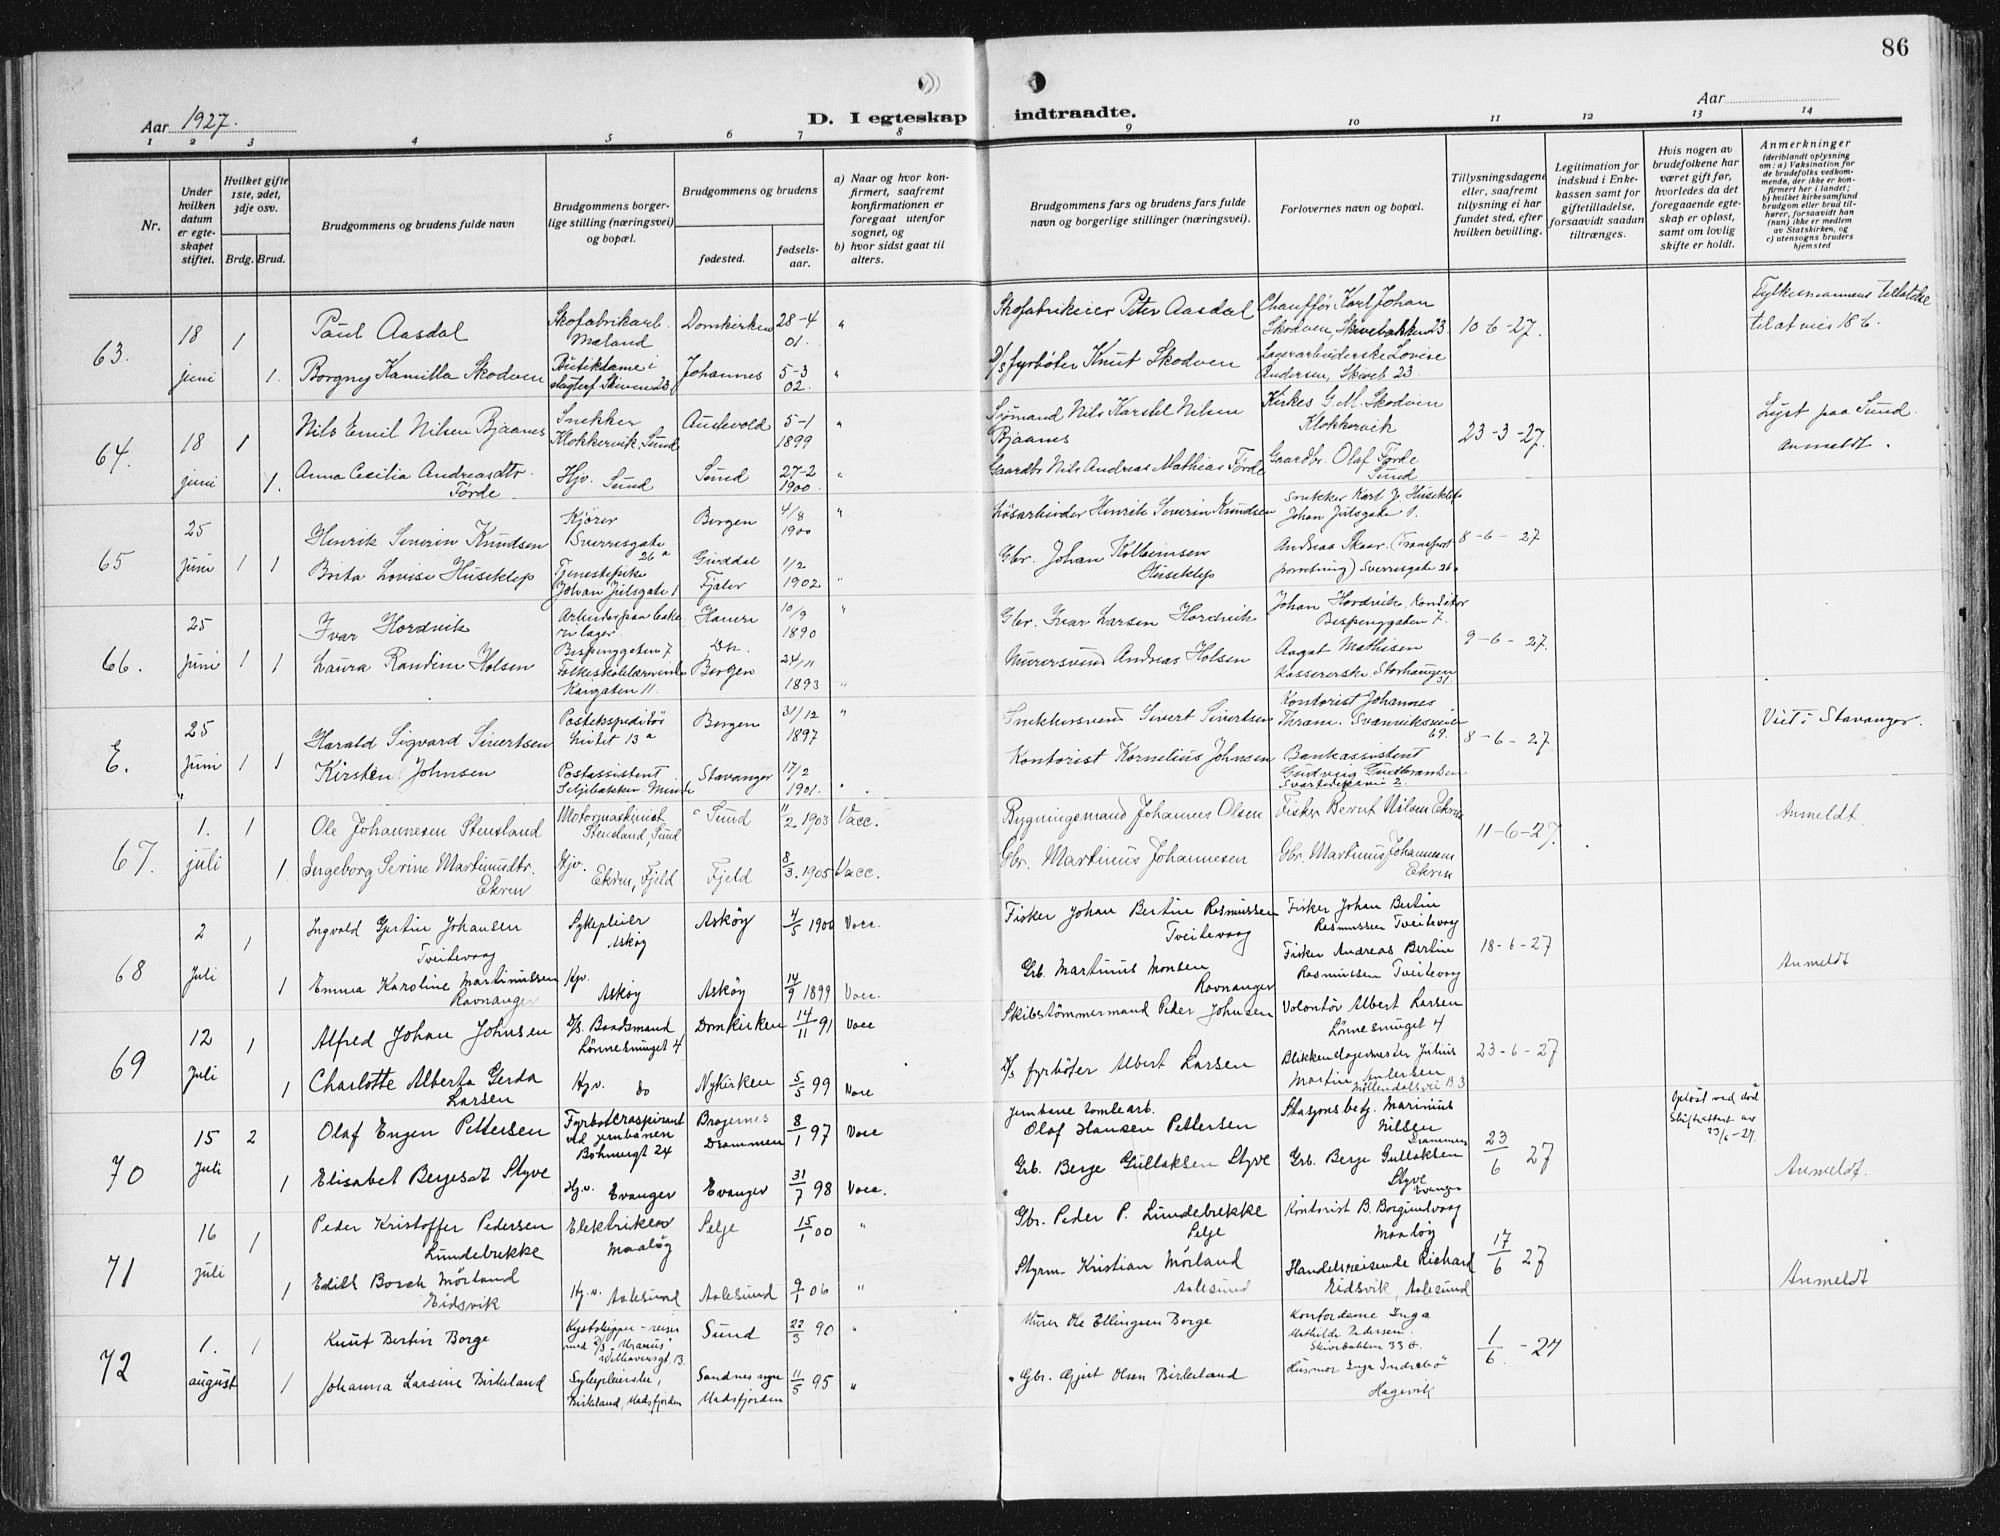 86
Aar 1927.
D. I egteskap indtraadte.
Aar
1 2 3 4 5 6 7 8 9 10 11 12 13 14
Nr.
Under hvilken datum er egteskapet stiftet.
Hvilket gifte 1ste, 2det, 3dje osv.
Brdg. Brud.
Brudgommens og brudens fulde navn
Brudgommens borgerlige stilling (næringsvei) og bopæl.
Brudgommens og brudens
fødested.
fødselsaar.
a) Naar og hvor konfirmert, saafremt konfirmationen er foregaat utenfor sognet, og
b) hvor sidst gaat til alters.
Brudgommens fars og brudens fars fulde navn og borgerlige stillinger (næringsvei).
Forlovernes navn og bopæl.
Tillysningsdagene eller, saafremt tillysning ei har fundet sted, efter hvilken bevilling.
Legitimation for indskud i Enkekassen samt for giftetilladelse, forsaavidt saadan tiltrænges.
Hvis nogen av brudefolkene har været gift før, hvorledes da det foregaaende egteskap er opløst, samt om lovlig skifte er holdt.
Anmerkninger
(deriblandt oplysning om: a) Vaksination for de brudefolks vedkommende, der ikke er konfirmert her i landet; b) hvilket kirkesamfund brudgom eller brud tilhører, forsaavidt han (hun) ikke er medlem av Statskirken, og c) utensogns bruders hjemsted
63. 18 juni 1 Paul Aasdal Skofabrikarb. Domkirken 28-4 01. " Skofabrikeier Peter Aasdal Chauffør Karl Johan Skodven, Skivebakken 23 10-6-27. Fylkesmannens tillatelse til at vies 18-6.
1. Borgny Kamilla Skodven Butikdame i Johannes 5-3 02. " D/s fyrbøter Knut Skodven Lovise Andersen, Skiveb. 23.
64. 18 juni 1 Nils Emil Nilsen Bjaanes Snekker Klokkervik, Sund Austevold 5-1 1899 " Sjømand Nils Karstel Nilsen Bjaanes Kirkes. G. M. Skodven Klokkervik 23-3-27. Lyst paa Sund. Anmeldt.
1. Anna Cecilia Andreasdtr. Førde Hjv. Sund Sund 27-2 1900. " Gaardbr. Nils Andreas Mathias Førde Gaardbr. Olaf Førde Sund
65 25 juni 1 Henrik Severin Knudsen Kjører Sverresgate 26a Bergen 4/8 1900 " Løsarbeider Henrik Severin Knudsen Snekker Karl J. Huseklep Johan Julsgate 1. 8-6-27
1 Brita Lovise Huseklep Tjenestepike Johan Julsgate 1 Guddal Fjaler 1/2 1902 " Gbr. Johan Kolbeinsen Huseklep Andreas Skaar (Transportforretning) Sverresgate 26a
66. 25 juni 1 Ivar Hordvik Arbeider paa bakerilager Bispenggaten 7 Hamre 10/9 1890 " Gbr. Ivar Larsen Hordvik Johan Hordvik, Konditor Bispenggaten 7. 9-6-27.
1 Laura Randine Holsen Folkeskolelærerinde Kaigaten 11. Bergen 24/11 1893 " Murersvend Andreas Holsen Aagot Mathisen Kassererske. Storhaugen 31.
E. 25 juni 1 Harald Sigvard Sivertsen Postekspeditør 13a Bergen 31/12 1897 " Snekkersvend Sivert Sivertsen Kontorist Johannes Thram. Svanviksveien 69. 8-6-27. Viet i Stavanger.
1 Kirsten Johnsen Postassistent Seljebakken. Minde Stavanger 17/2 1901. " Kontorist Kornelius Johnsen Bankassistent Gudveig Gudbrandsen
67. 1. juli 1 Ole Johannesen Stensland Motormaskinist Stensland, Sund Sund 11/2 1903 Vacc. Bygningsmand Johannes Olsen Fisker Bernt Nilsen Ekren 11-6-27. Anmeldt.
1 Ingeborg Serine Martinusdtr. Ekren Hjv. Ekren, Fjeld Fjeld 8/3. 1905 Vacc. Gbr. Martinus Johannesen Gbr. Martinus Johannesen Ekren
68 2 Juli 1 Ingvald Gjertin Johansen Tveitevaag Sykepleier Askøy Askøy 4/5 1900 Vacc. Fisker Johan Bertin Rasmussen Tveitevaag Fisker Johan Bertin Rasmussen Tveitevaag 18-6-27
1 Emma Karoline Martinussen Ravnanger Hjv. Askøy Askøy 14/9 1899 Vacc. Grb. Martinus Monsen Ravnanger Fisker Andreas Bertin Rasmussen Tveitevaag Anmeldt
69 12 juli 1 Alfred Johan Johnsen D/s. Baadsmand Lønnesmuget 4 Domkirken 14/11 91 Vacc Skibstømmermand Peder Johnsen Volontør Albert Larsen Lønnesmuget 4 23-6-27
1 Charlotte Alberta Gerda Larsen Hjv. do Nykirken 5/5 99 Vacc D/s fyrbøter Albert Larsen Blikkenslagermester Julius Martin Andersen Møllendalsvei B. 3
70 15 Juli 2 Olaf Engen Pettersen Fyrbøteraspirant ved jernbanen Bøhmergt 24 Bragernes Drammen 8/1 97 Vacc Jernbanetomtearb. Olaf Hansen Pettersen Stasjonsbetj. Marinius Nilsen Drammen 23/6 27 Opløst ved død Skifteattest av 23/6-27.
1 Elisabet Bergesdt Styve Hj.v. Evanger Evanger 31/7 98 Vacc. Grb. Berge Gullaksen Styve Grb. Berge Gullaksen Styve Evanger Anmeldt
71 16 juli 1 Peder Kristoffer Pedersen Lundebrekke Elektriker Maaløy Selje 15/1 00 " Gbr. Peder P. Lundebrekke Selje Kontorist B. Borgundvaag Maaløy 17/6 27
1 Edith Bosch Mörland Eidsvik Hj.v. Aalesund Aalesund 9/1 06 " Styrm. Kristian Mörland Aalesund Handelsreisende Richard Eidsvik, Aalesund Anmeldt
72 1. august 1 Knut Bertin Borge Kystskipper - reiser med D/s "Uranus" Sund 22/3 90 " Murer Ole Ellingsen Borge Inga Mathilde Pedersen. Skivebakken 33 A. 1/6. -27
1 Johanna Larsine Birkeland Sykepleierske, Birkeland, Madsfjorden Sandnes sogn Madsfjorden 11/5 95 " Gbr. Gjert Olsen Birkeland Husmor Inga Indrebø Hagevik